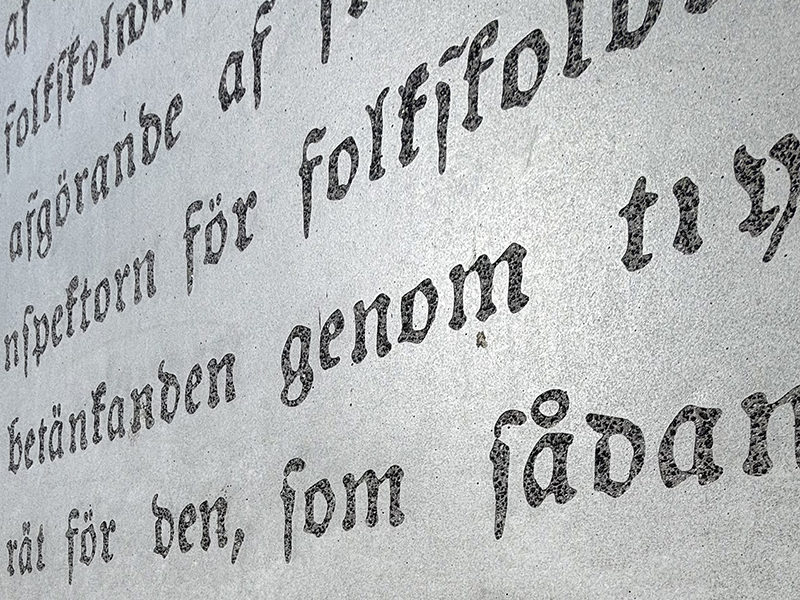 af
afgörande af
nſpektorn för folkſkolv
betänkanden genom ti
rät för den, ſom ſådan